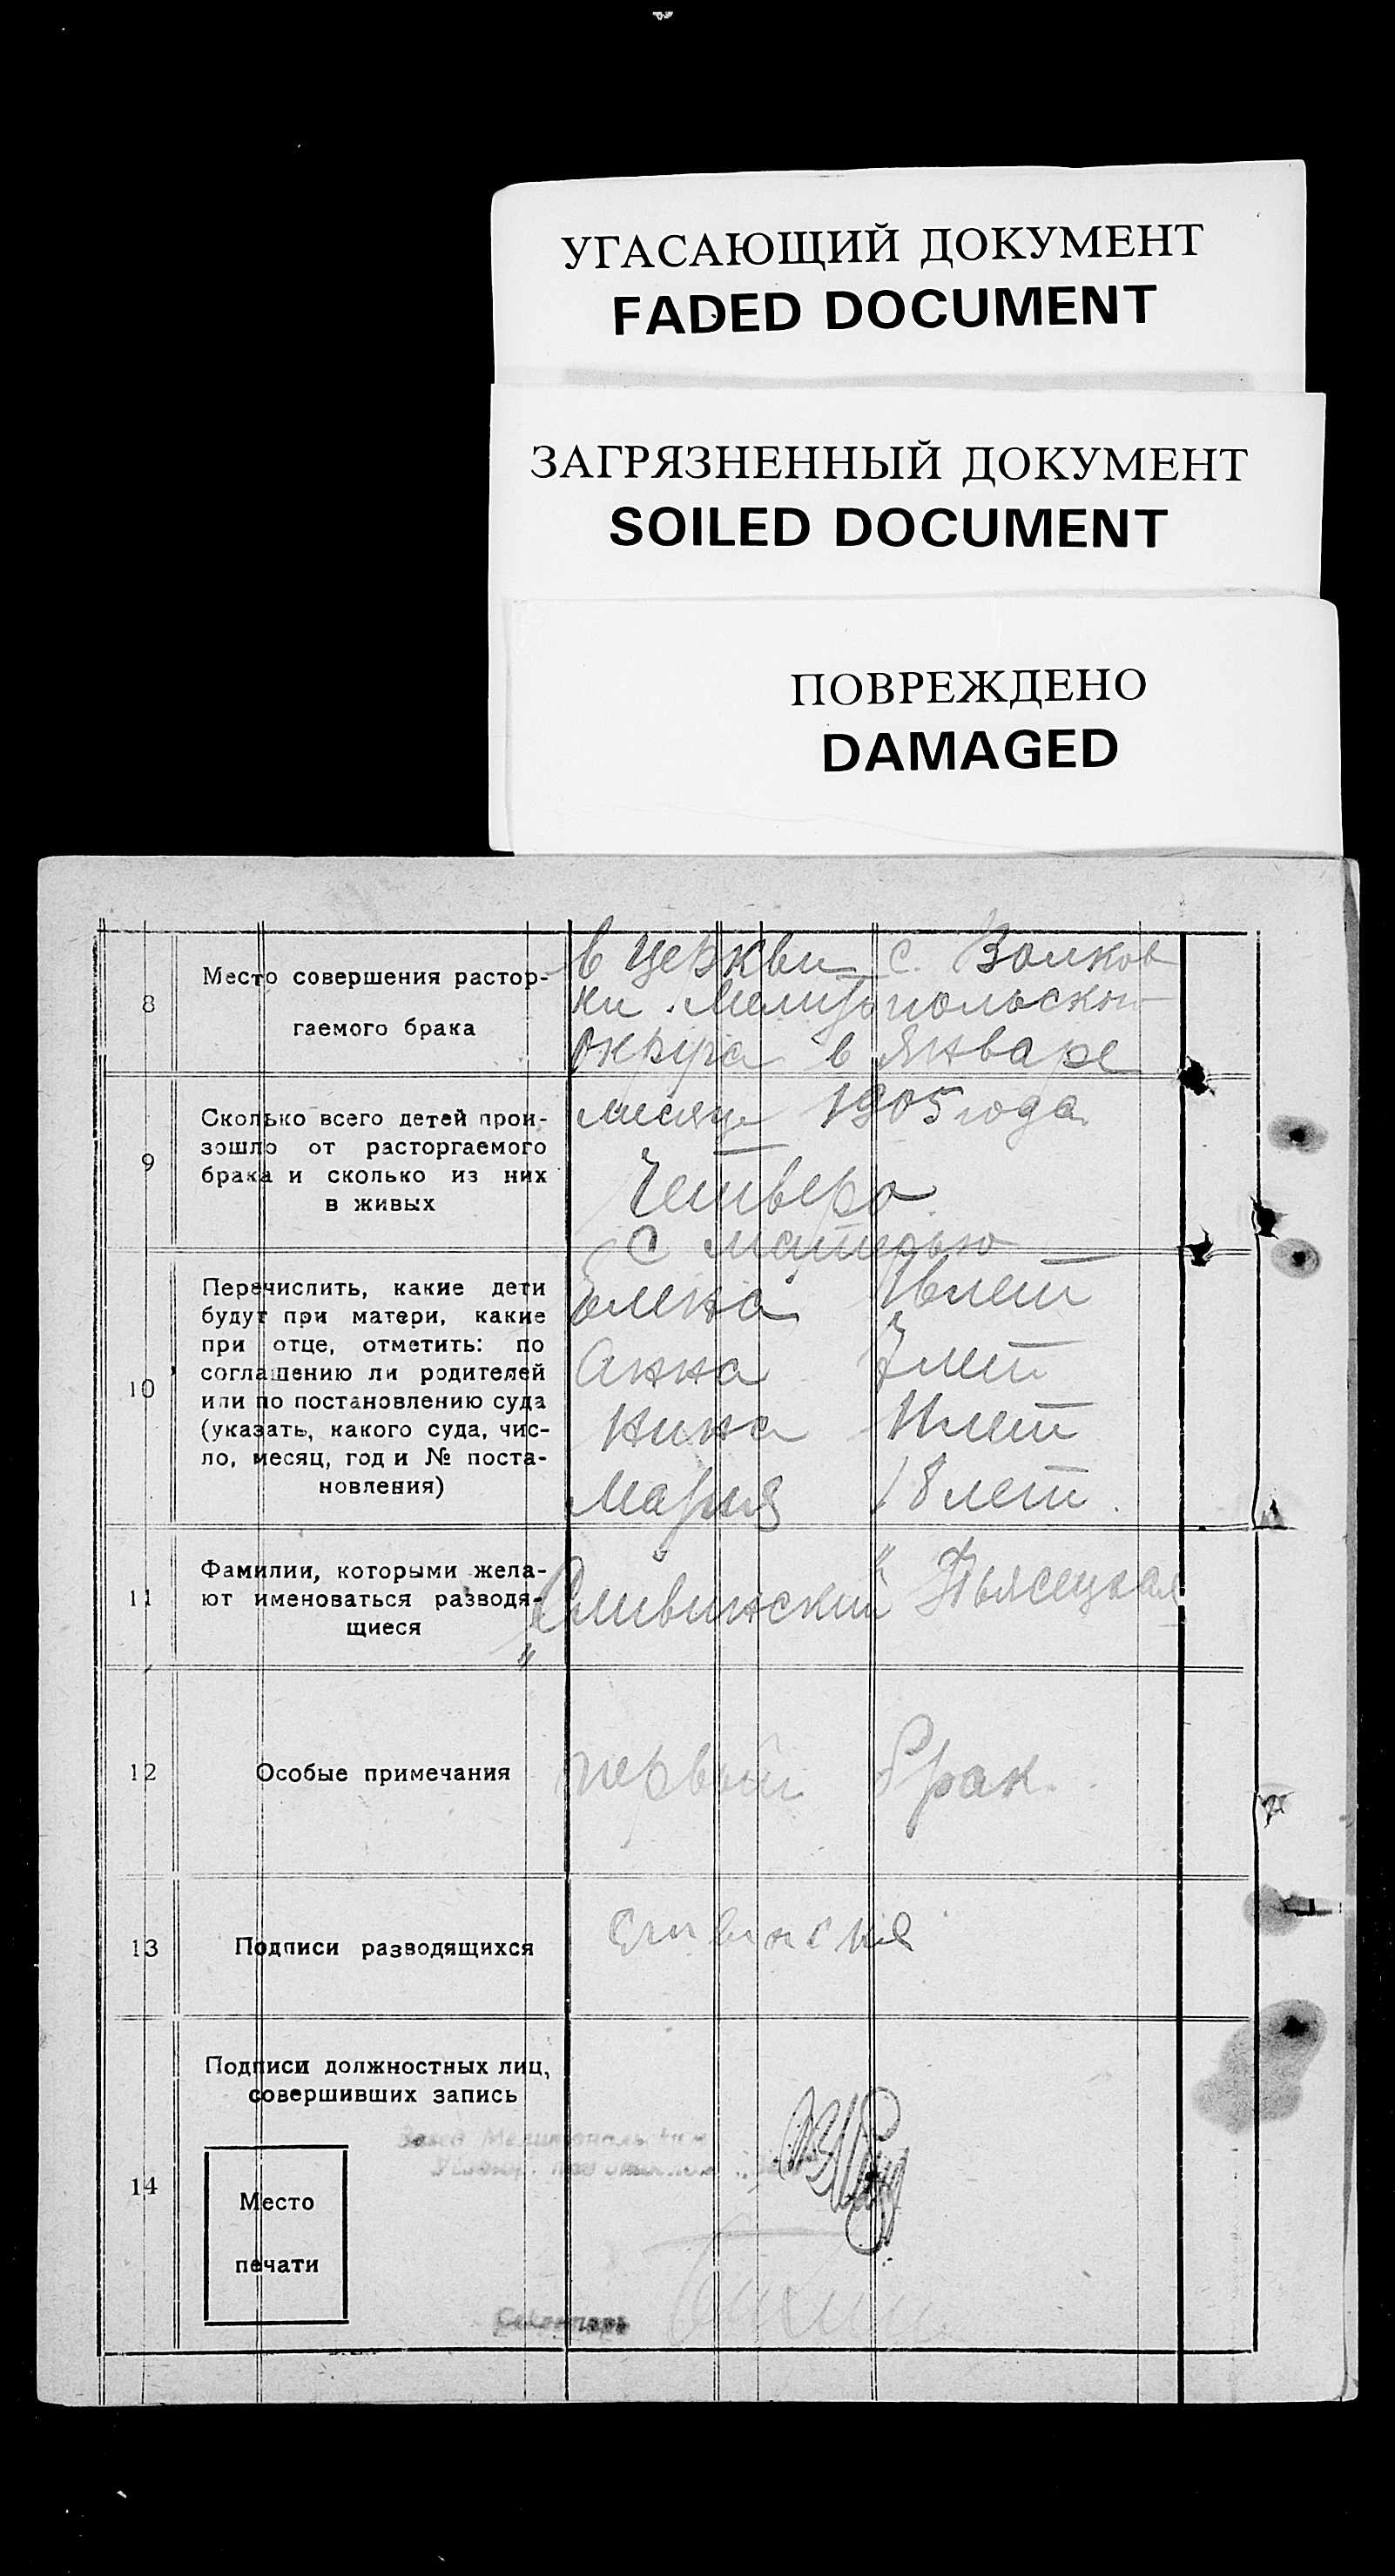 УГАСАЮЩИЙ ДОКУМЕНТ
FADED DOCUMENT
ЗАГРЯЗНЕННЫЙ ДОКУМЕНТ
SOILED DOCUMENT
ПОВРЕЖДЕНО
DAMAGED
8
Место совершения растор-
гаемого брака
в церкви с. Волков
ки Мелитопольского
округа в Январе
месяце 1905 года
9
Сколько всего детей прои-
зошло от расторгаемого
брака и сколько из них
в живых
Четверо
10
Перечислить, какие дети
будут при матери, какие
при отце, отметить: по
соглашению ли родителей
или по постановлению суда
(указать, какого суда, чис-
ло, месяц, год и № поста-
новления)
с матерью
Елена лет
Анна 7 лет
Нина 11 лет
Мария 18 лет.
11
Фамилии, которыми жела-
ют именоваться разводя-
щиеся
„Сливинский"
12
Особые примечания
первый брак.
13
Подписи разводящихся
14
Подписи должностных лиц,
совершивших запись
Место
печати
Секретарь